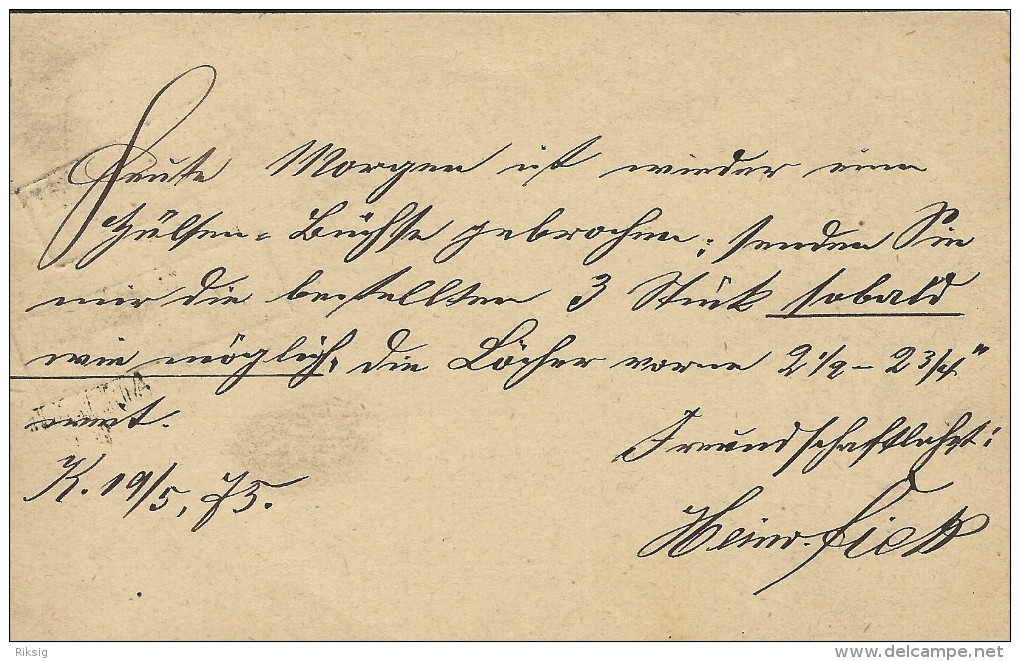 Heute Morgen ist wieder eine
Hülsen-Büchse gebrochen; senden Sie
mir die bestellten 3 Stück sobald
wie möglich, die Löcher vorne 2 1/2 – 2 3/4"
weit.
Freundschaftlichst:
K. 19/5, 75.
Heinr.
Riksig
www.delcampe.net